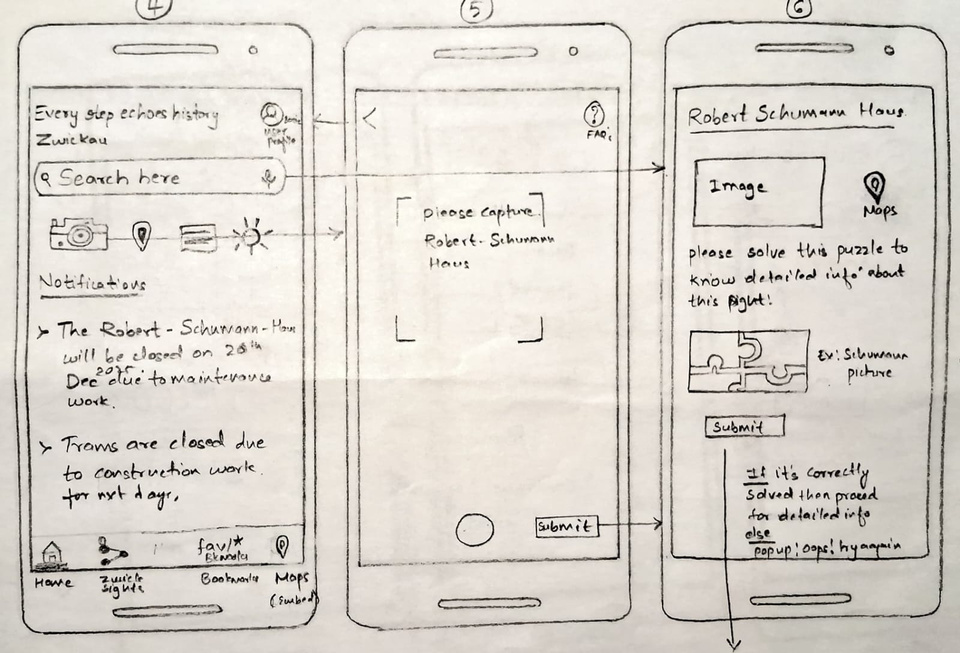 4
Every step echoes history
Zwickau
Profile
Search here
Notifications
> The Robert-Schumann-Haus
will be closed on 20th
Dec 2025 due to maintenance
work.
> Trams are closed due
to construction work
for nxt days,
Home
Zwick
Sights
fav/*
Bkmarks
Bookmarks
Maps
(Embed)
5
<
?
FAQ's
please capture
Robert-Schumann
Haus
Submit
6
Robert Schumann Haus
Image
Maps
please solve this puzzle to
know detailed info' about
this sight!
Ex: Schumann
picture
Submit
If it's correctly
Solved then proceed
for detailed info
else
popup! oops! try again